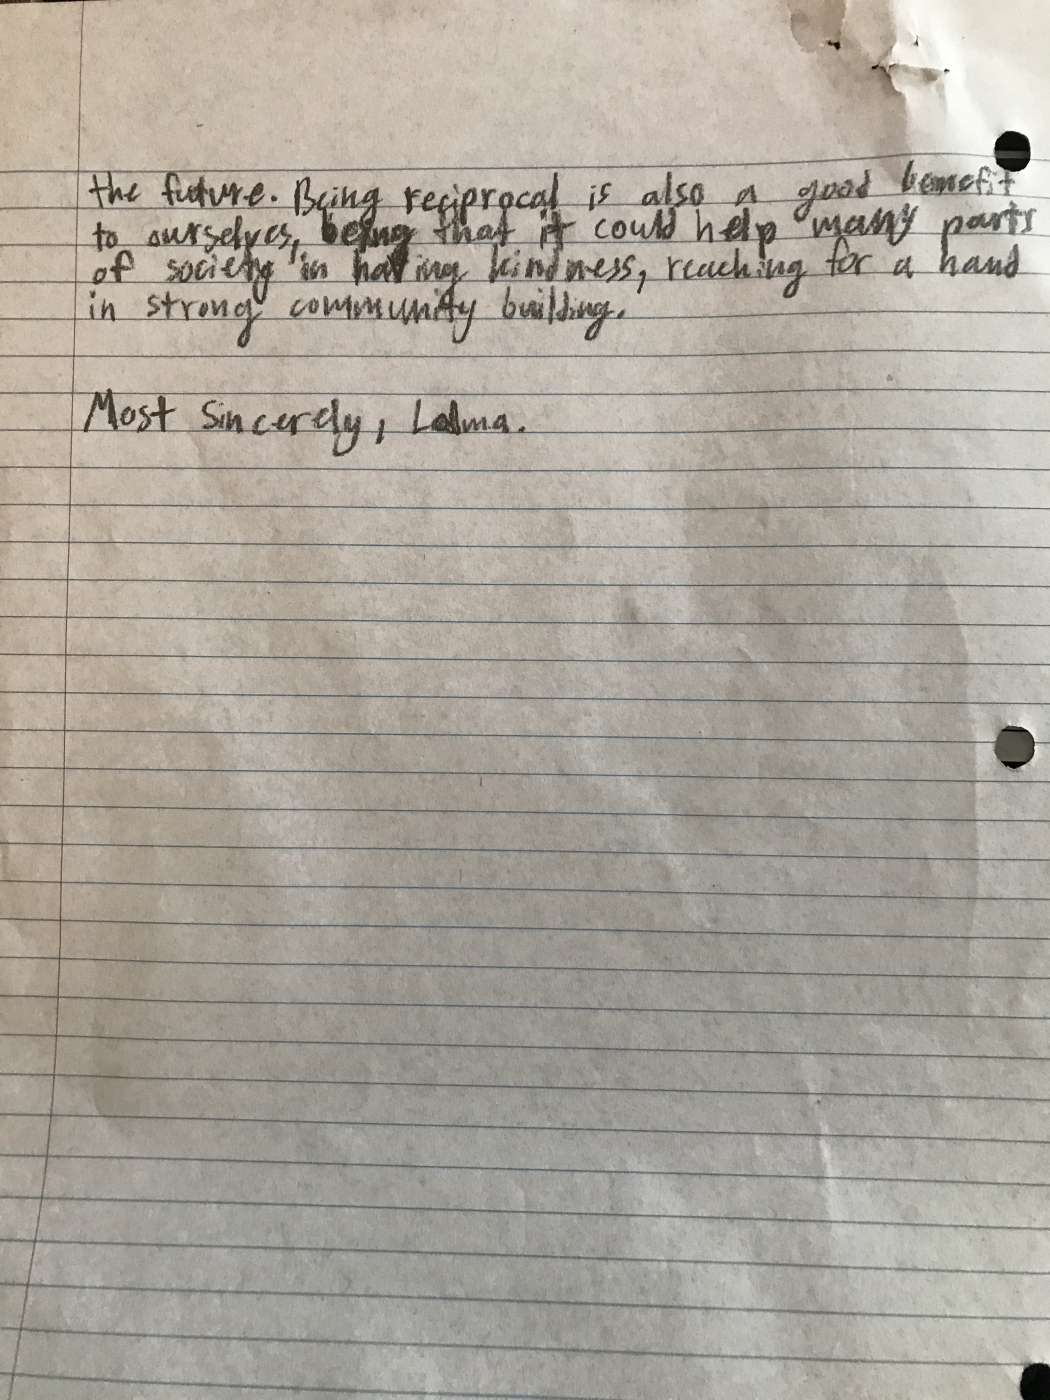 the future. Being reciprocal is also a good benefit
to ourselves, being that it could help many parts
of society in having kindness, reaching for a hand
in strong community building.
Most Sincerely,